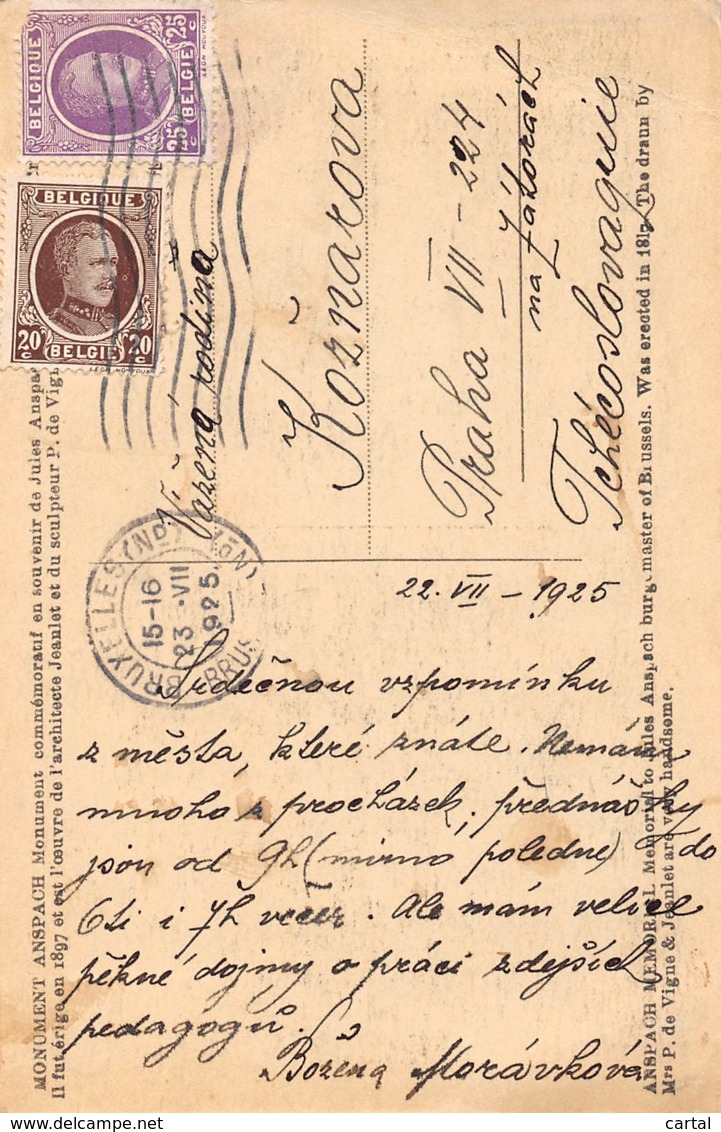 BELGIQUE
25 c 25 c
BELGIE
LÉON HOUYOUX
BELGIQUE
20 c 20 c
BELGIE
LÉON HOUYOUX
BRUXELLES (ND)
15-16
23 ·VII
1925
BRUS
(ND)
Vážená rodina
Kožnarova
Praha VII - 224
na Zátorách
Tchécoslovaquie
22. VII - 1925
Srdečnou vzpomínku
z města, které znáte. Nemám
mnoho z procházek, přednášky
jsou od 9h (mimo poledne) do
6ti i 7h večer. Ale mám velice
pěkné dojmy o práci zdejších
pedagogů.
Božena Morávková
MONUMENT ANSPACH Monument commémoratif en souvenir de Jules Anspa
Il fut érigé en 1897 et est l'œuvre de l'architecte Jeanlet et du sculpteur P. de Vign
ANSPACH MEMORIAL Memorial to Jules Anspach burgemaster of Brussels. Was erected in 1817. The draun by
Mrs P. de Vigne & Jeanlet are very handsome.
cartal